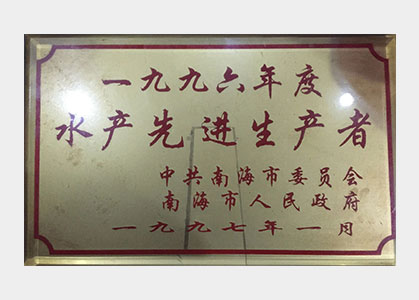 一九九六年度
水产先进生产者
中共南海市委员会
南海市人民政府
一九九七年一月